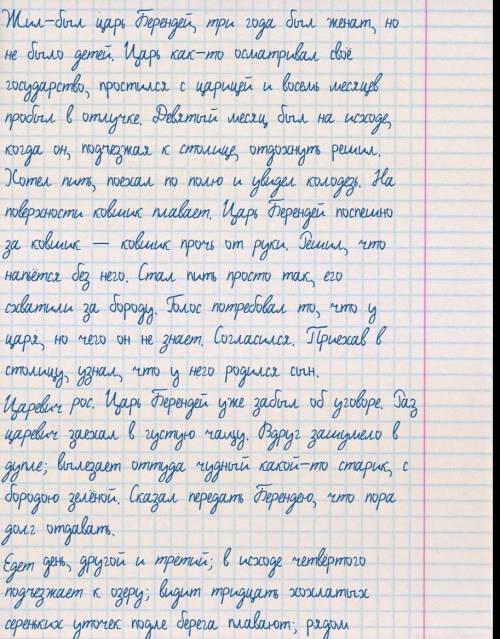 Жил-был царь Берендей, три года был женат, но
не было детей. Царь как-то осматривал своё
государство, простился с царицей и восемь месяцев
пробыл в отлучке. Девятый месяц был на исходе,
когда он, подъезжая к столице, отдохнуть решил.
Хотел пить, поехал по полю и увидел колодезь. На
поверхности ковшик плавает. Царь Берендей поспешно
за ковшик — ковшик прочь от руки. Решил, что
напьётся без него. Стал пить просто так, его
схватили за бороду. Голос потребовал то, что у
царя, но чего он не знает. Согласился. Приехав в
столицу, узнал, что у него родился сын.
Царевич рос. Царь Берендей уже забыл об уговоре. Раз
царевич заехал в густую чащу. Вдруг зашумело в
дупле; вылезает оттуда чудный какой-то старик, с
бородою зелёной. Сказал передать Берендею, что пора
долг отдавать.
Едет день, другой и третий; в исходе четвёртого
подъезжает к озеру; видит тридцать хохлатых
сереньких уточек подле берега плавают; рядом